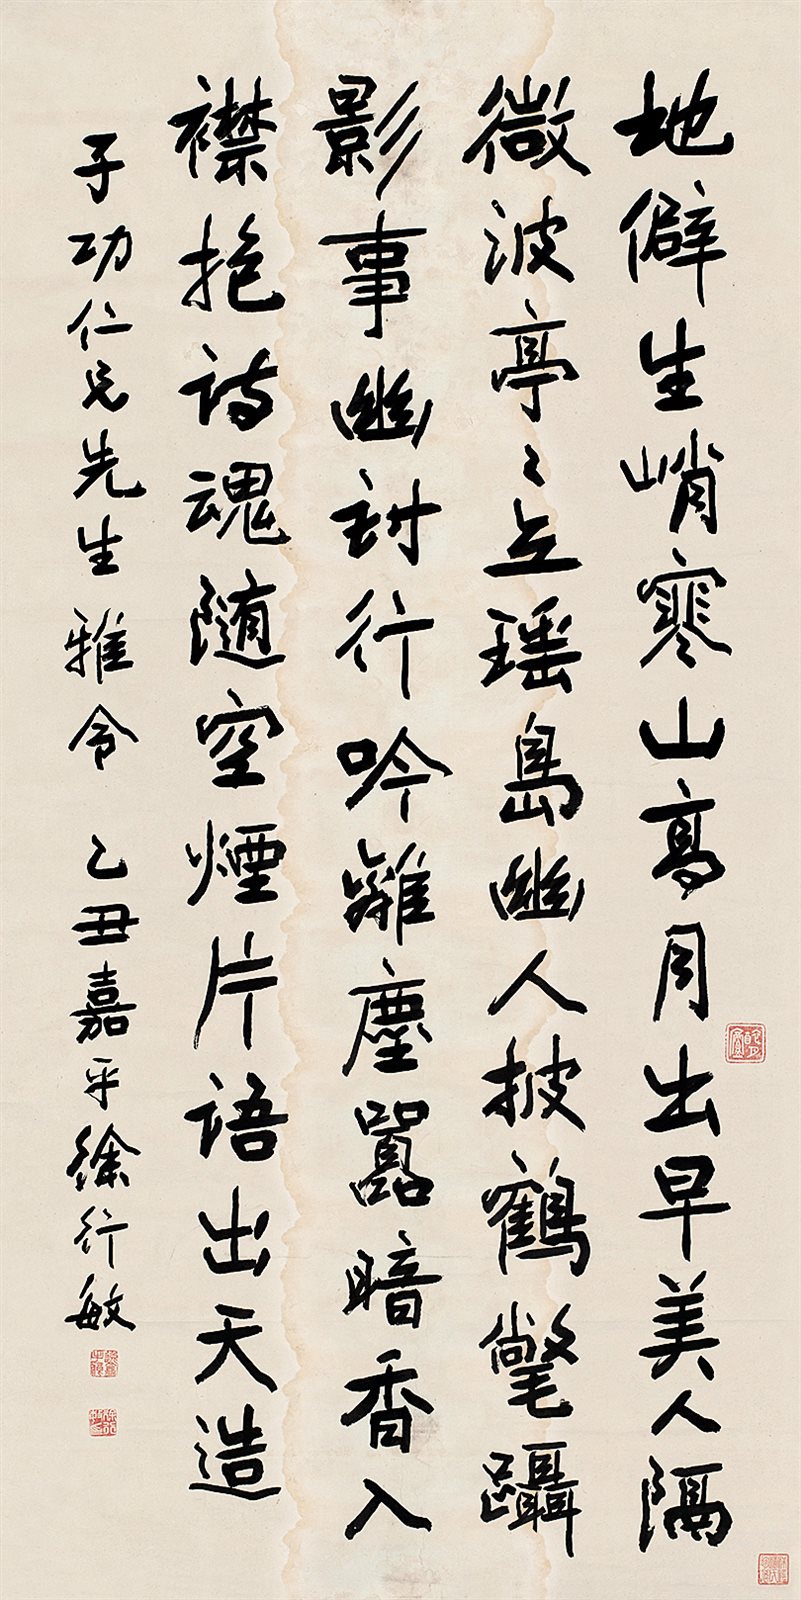 地僻生峭寒山高月出早美人隔
微波亭〻立瑶島幽人披鶴氅躡
影事幽討行吟離塵囂暗香入
襟抱詩魂随空煙片语出天造
子功仁兄先生雅令 乙丑嘉平徐行敏